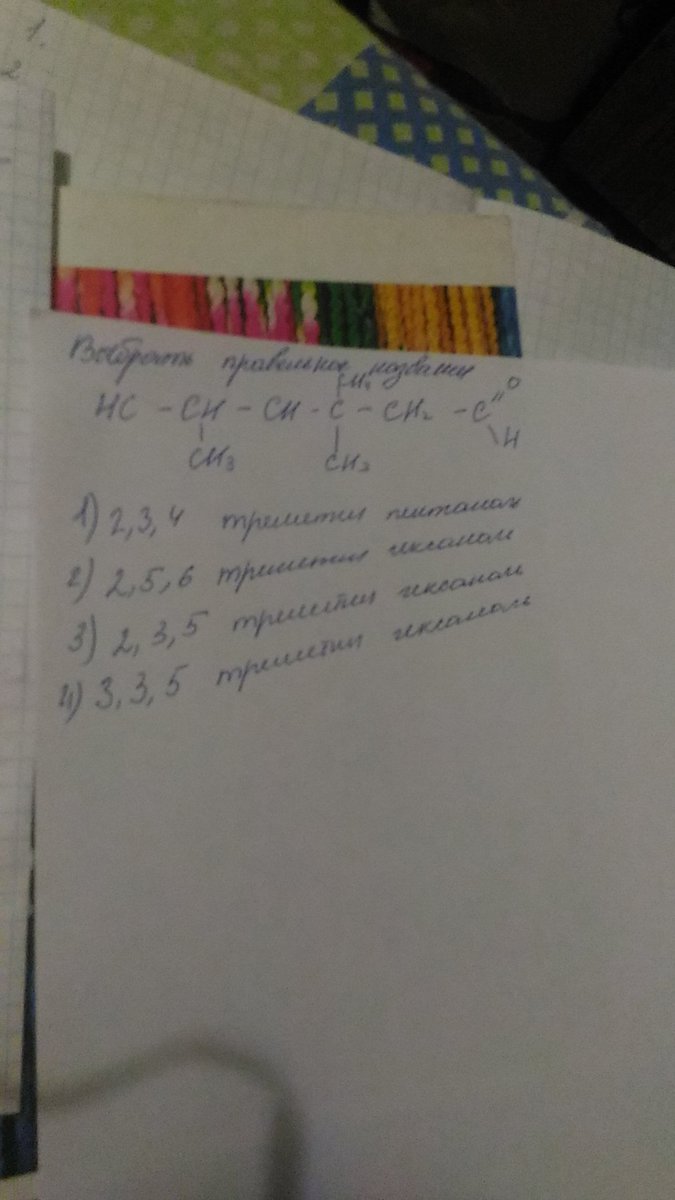 1.
2
Выбрать правельное названи
CH₃
HC - CH - CH - C - CH₂ - C
O
"
\H
CH₃ CH₃
1) 2, 3, 4 триметил пентаналь
2) 2, 5, 6 триметил гексаналь
3) 2, 3, 5 триметил гексаналь
4) 3, 3, 5 триметил гексаналь